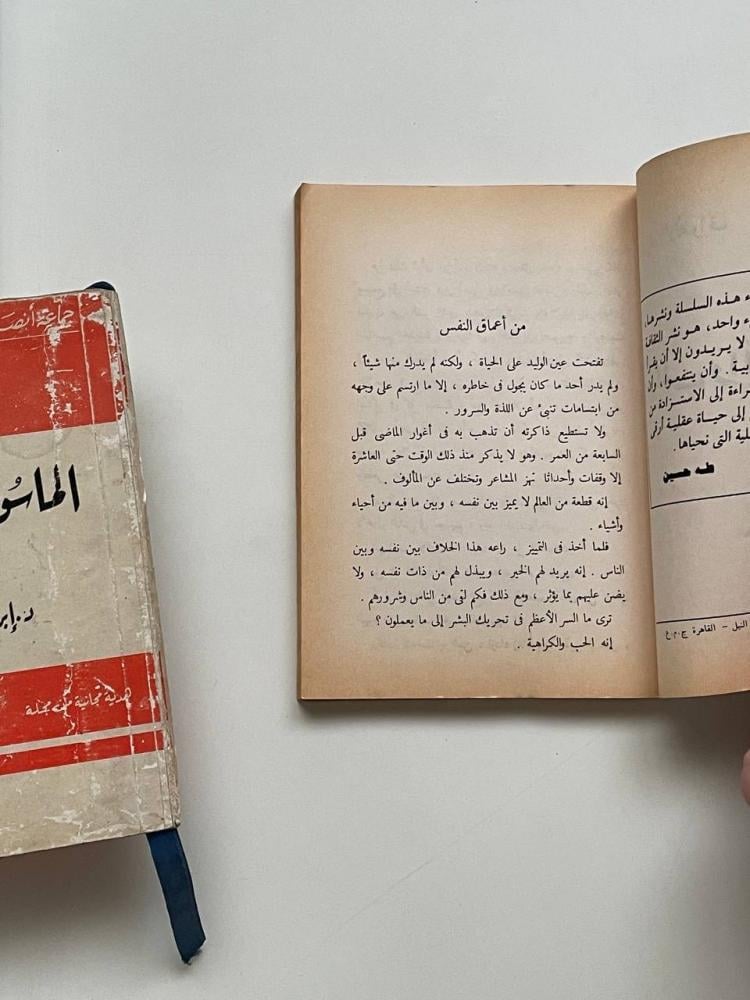 من أعماق النفس
تفتحت عين الوليد على الحياة ، ولكنه لم يدرك منها شيئاً ،
ولم يدر أحد ما كان يجول فى خاطره ، إلا ما ارتسم على وجهه
من ابتسامات تنبئ عن اللذة والسرور .
ولا تستطيع ذاكرته أن تذهب به فى أغوار الماضى قبل
السابعة من العمر . وهو لا يذكر منذ ذلك الوقت حتى العاشرة
إلا وقفات وأحداثا تهز المشاعر وتختلف عن المألوف .
إنه قطعة من العالم لا يميز بين نفسه ، وبين ما فيه من أحياء
وأشياء .
فلما أخذ فى التمييز ، راعه هذا الخلاف بين نفسه وبين
الناس . إنه يريد لهم الخير ، ويبذل لهم من ذات نفسه ، ولا
يضن عليهم بما يؤثر ، ومع ذلك فكم لقى من الناس وشرورهم .
ترى ما السر الأعظم فى تحريك البشر إلى ما يعملون ؟
إنه الحب والكراهية .
هذه السلسلة ونشرها،
واحد، هو نشر الثقافة
لا يريدون إلا أن يقرأ
وأن ينتفعوا، وأن
إلى الاستزادة من
إلى حياة عقلية أرقى
التى نحياها.
طه حسين
النيل - القاهرة ج.م.ع
جماعة أنصـ
الماسو
د. إبر
هدية مجانية مع مجلة